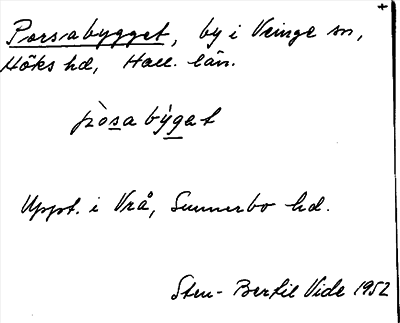 +
Porsabygget, by i Veinge sn,
Höks hd, Hall. län.
pòsabýgat
Uppt. i Vrå, Sunnerbo hd.
Sten-Bertil Vide 1952